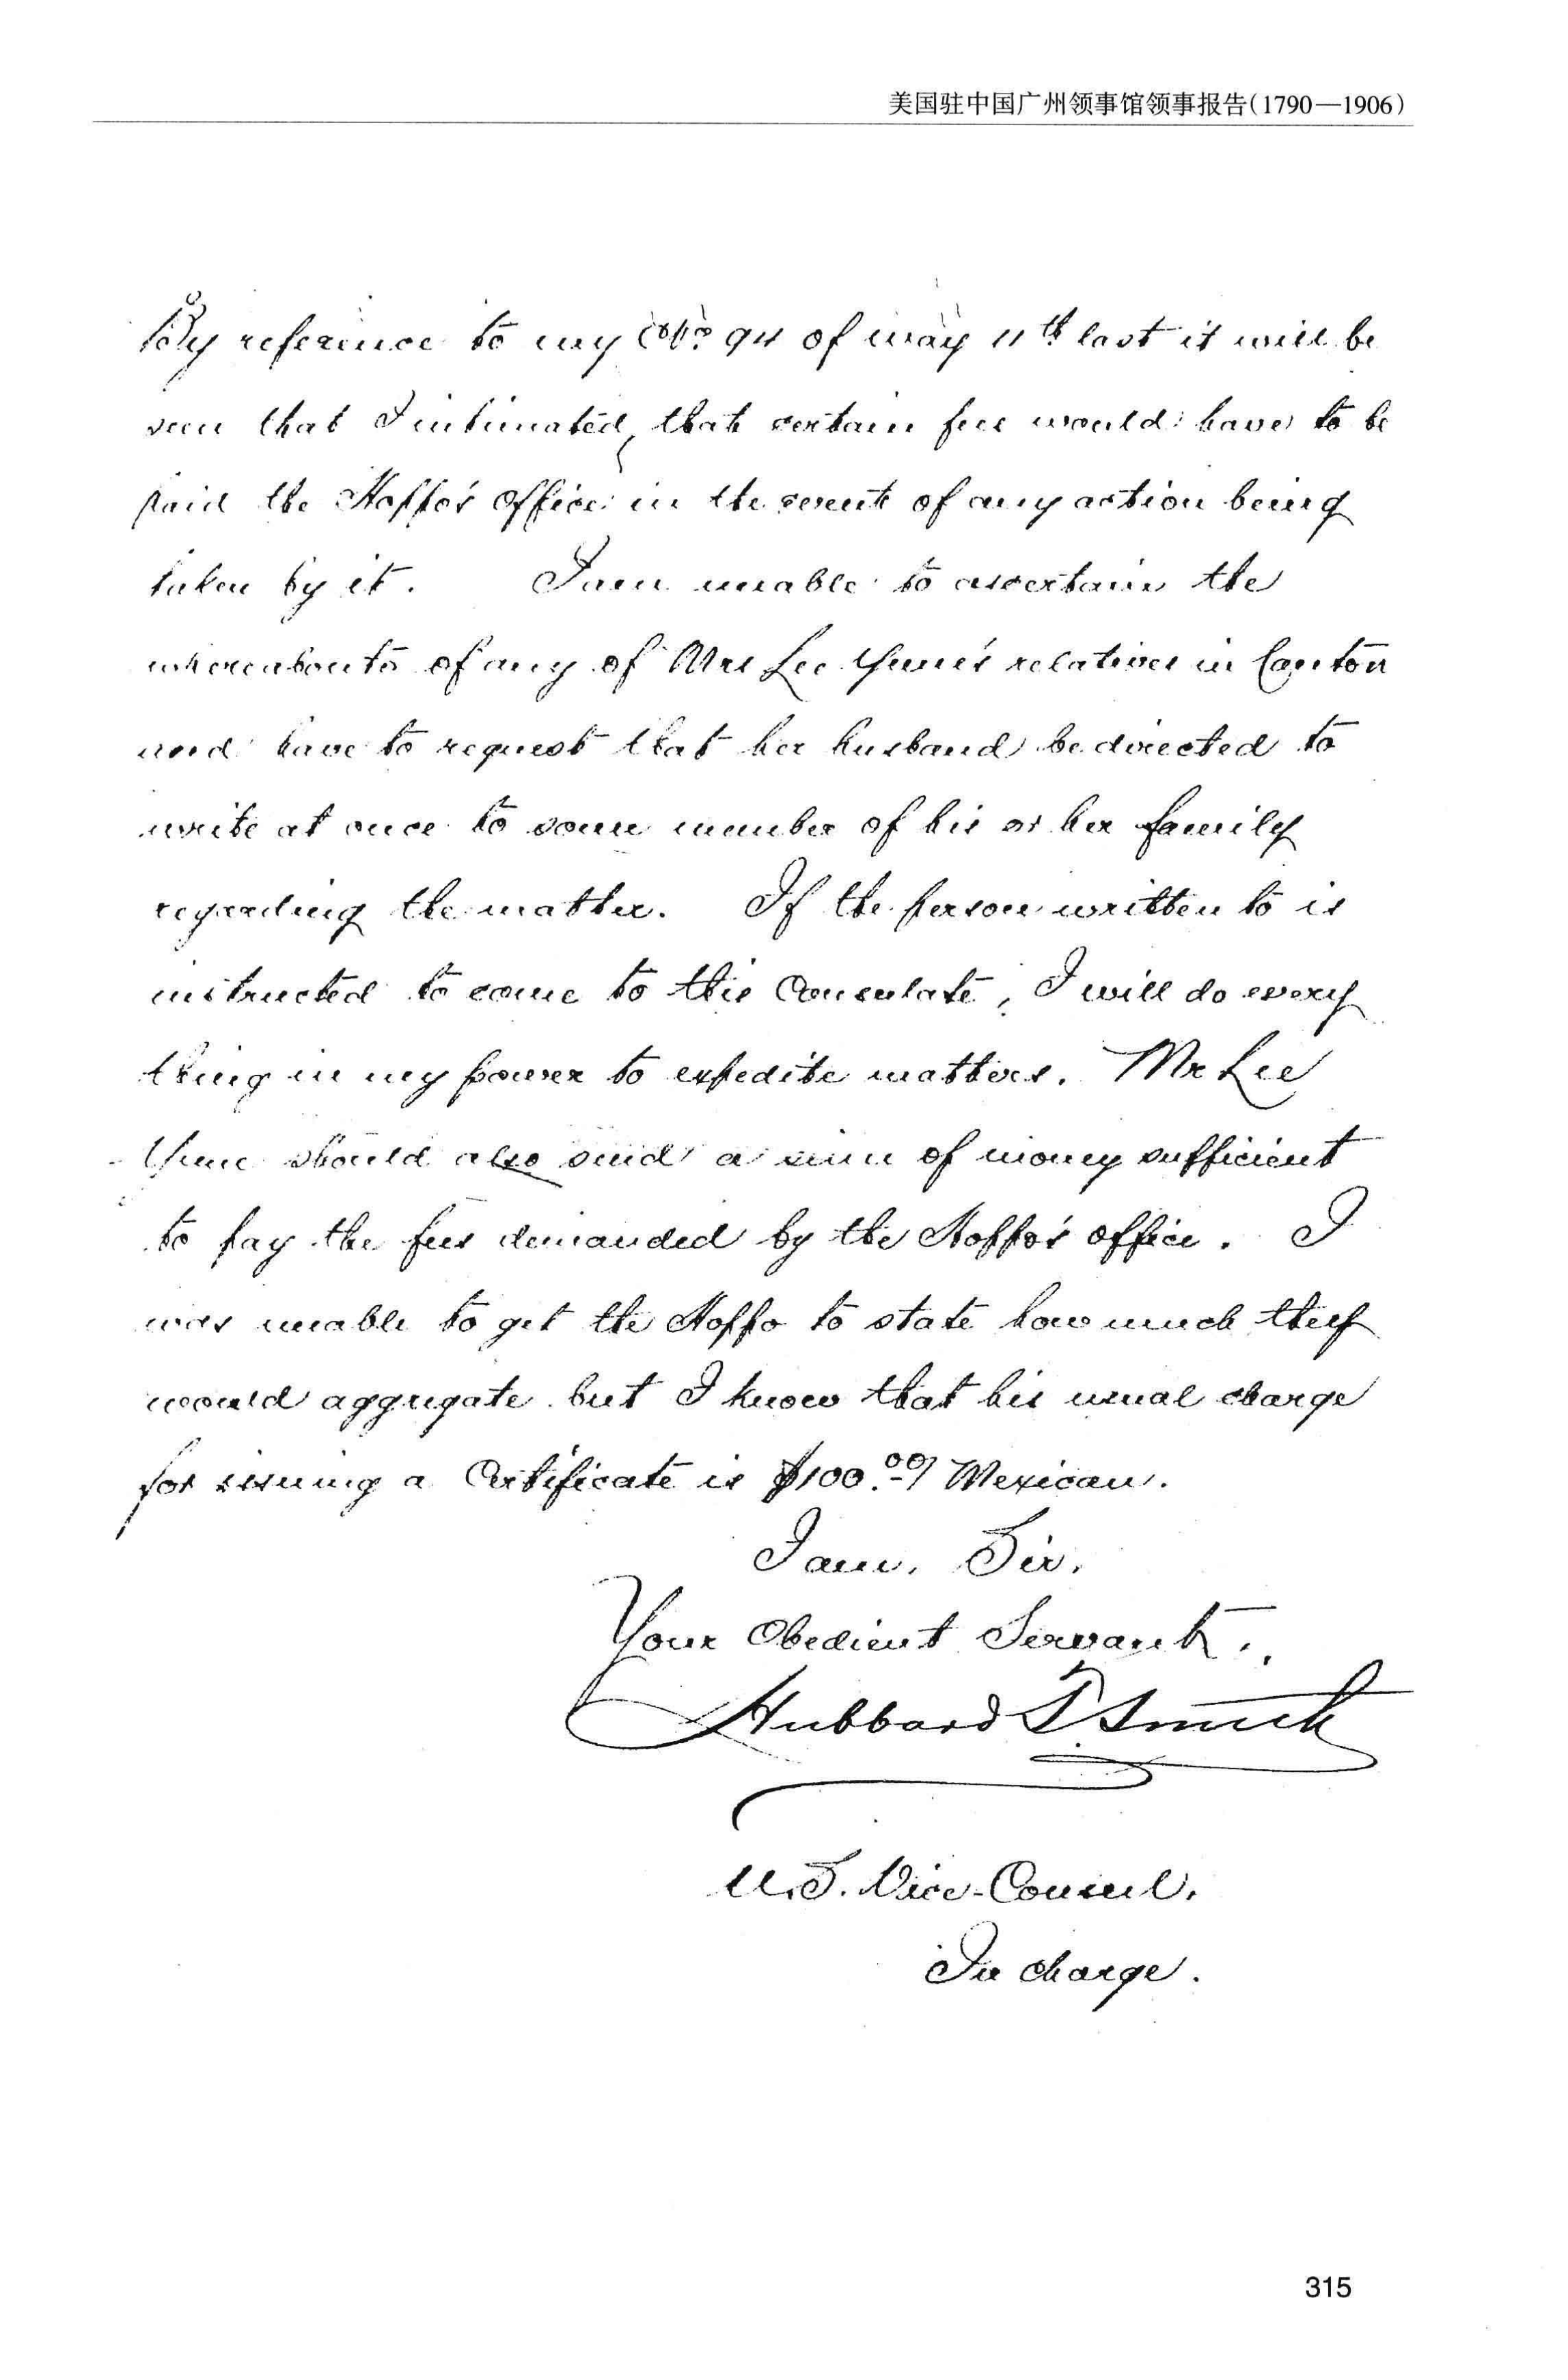 美国驻中国广州领事馆领事报告(1790—1906)
By reference to my No 94 of may 11th last it will be
seen that I intimated, that certain fees would have to be
paid the Hoppo's office in the event of any action being
taken by it. I am unable to ascertain the
whereabouts of any of Mrs Lee Yune's relatives in Canton
and have to request that her husband be directed to
write at once to some member of his or her family
regarding the matter. If the person written to is
instructed to come to this Consulate, I will do every
thing in my power to expedite matters. Mr Lee
Yune should also send a sum of money sufficient
to pay the fees demanded by the Hoppo's office. I
was unable to get the Hoppo to state how much they
would aggregate but I know that his usual charge
for issuing a Certificate is $100.00/ Mexican.
I am, Sir,
Your Obedient Servant.
Hubbard T. Smith
U.S. Vice-Consul,
In charge.
315